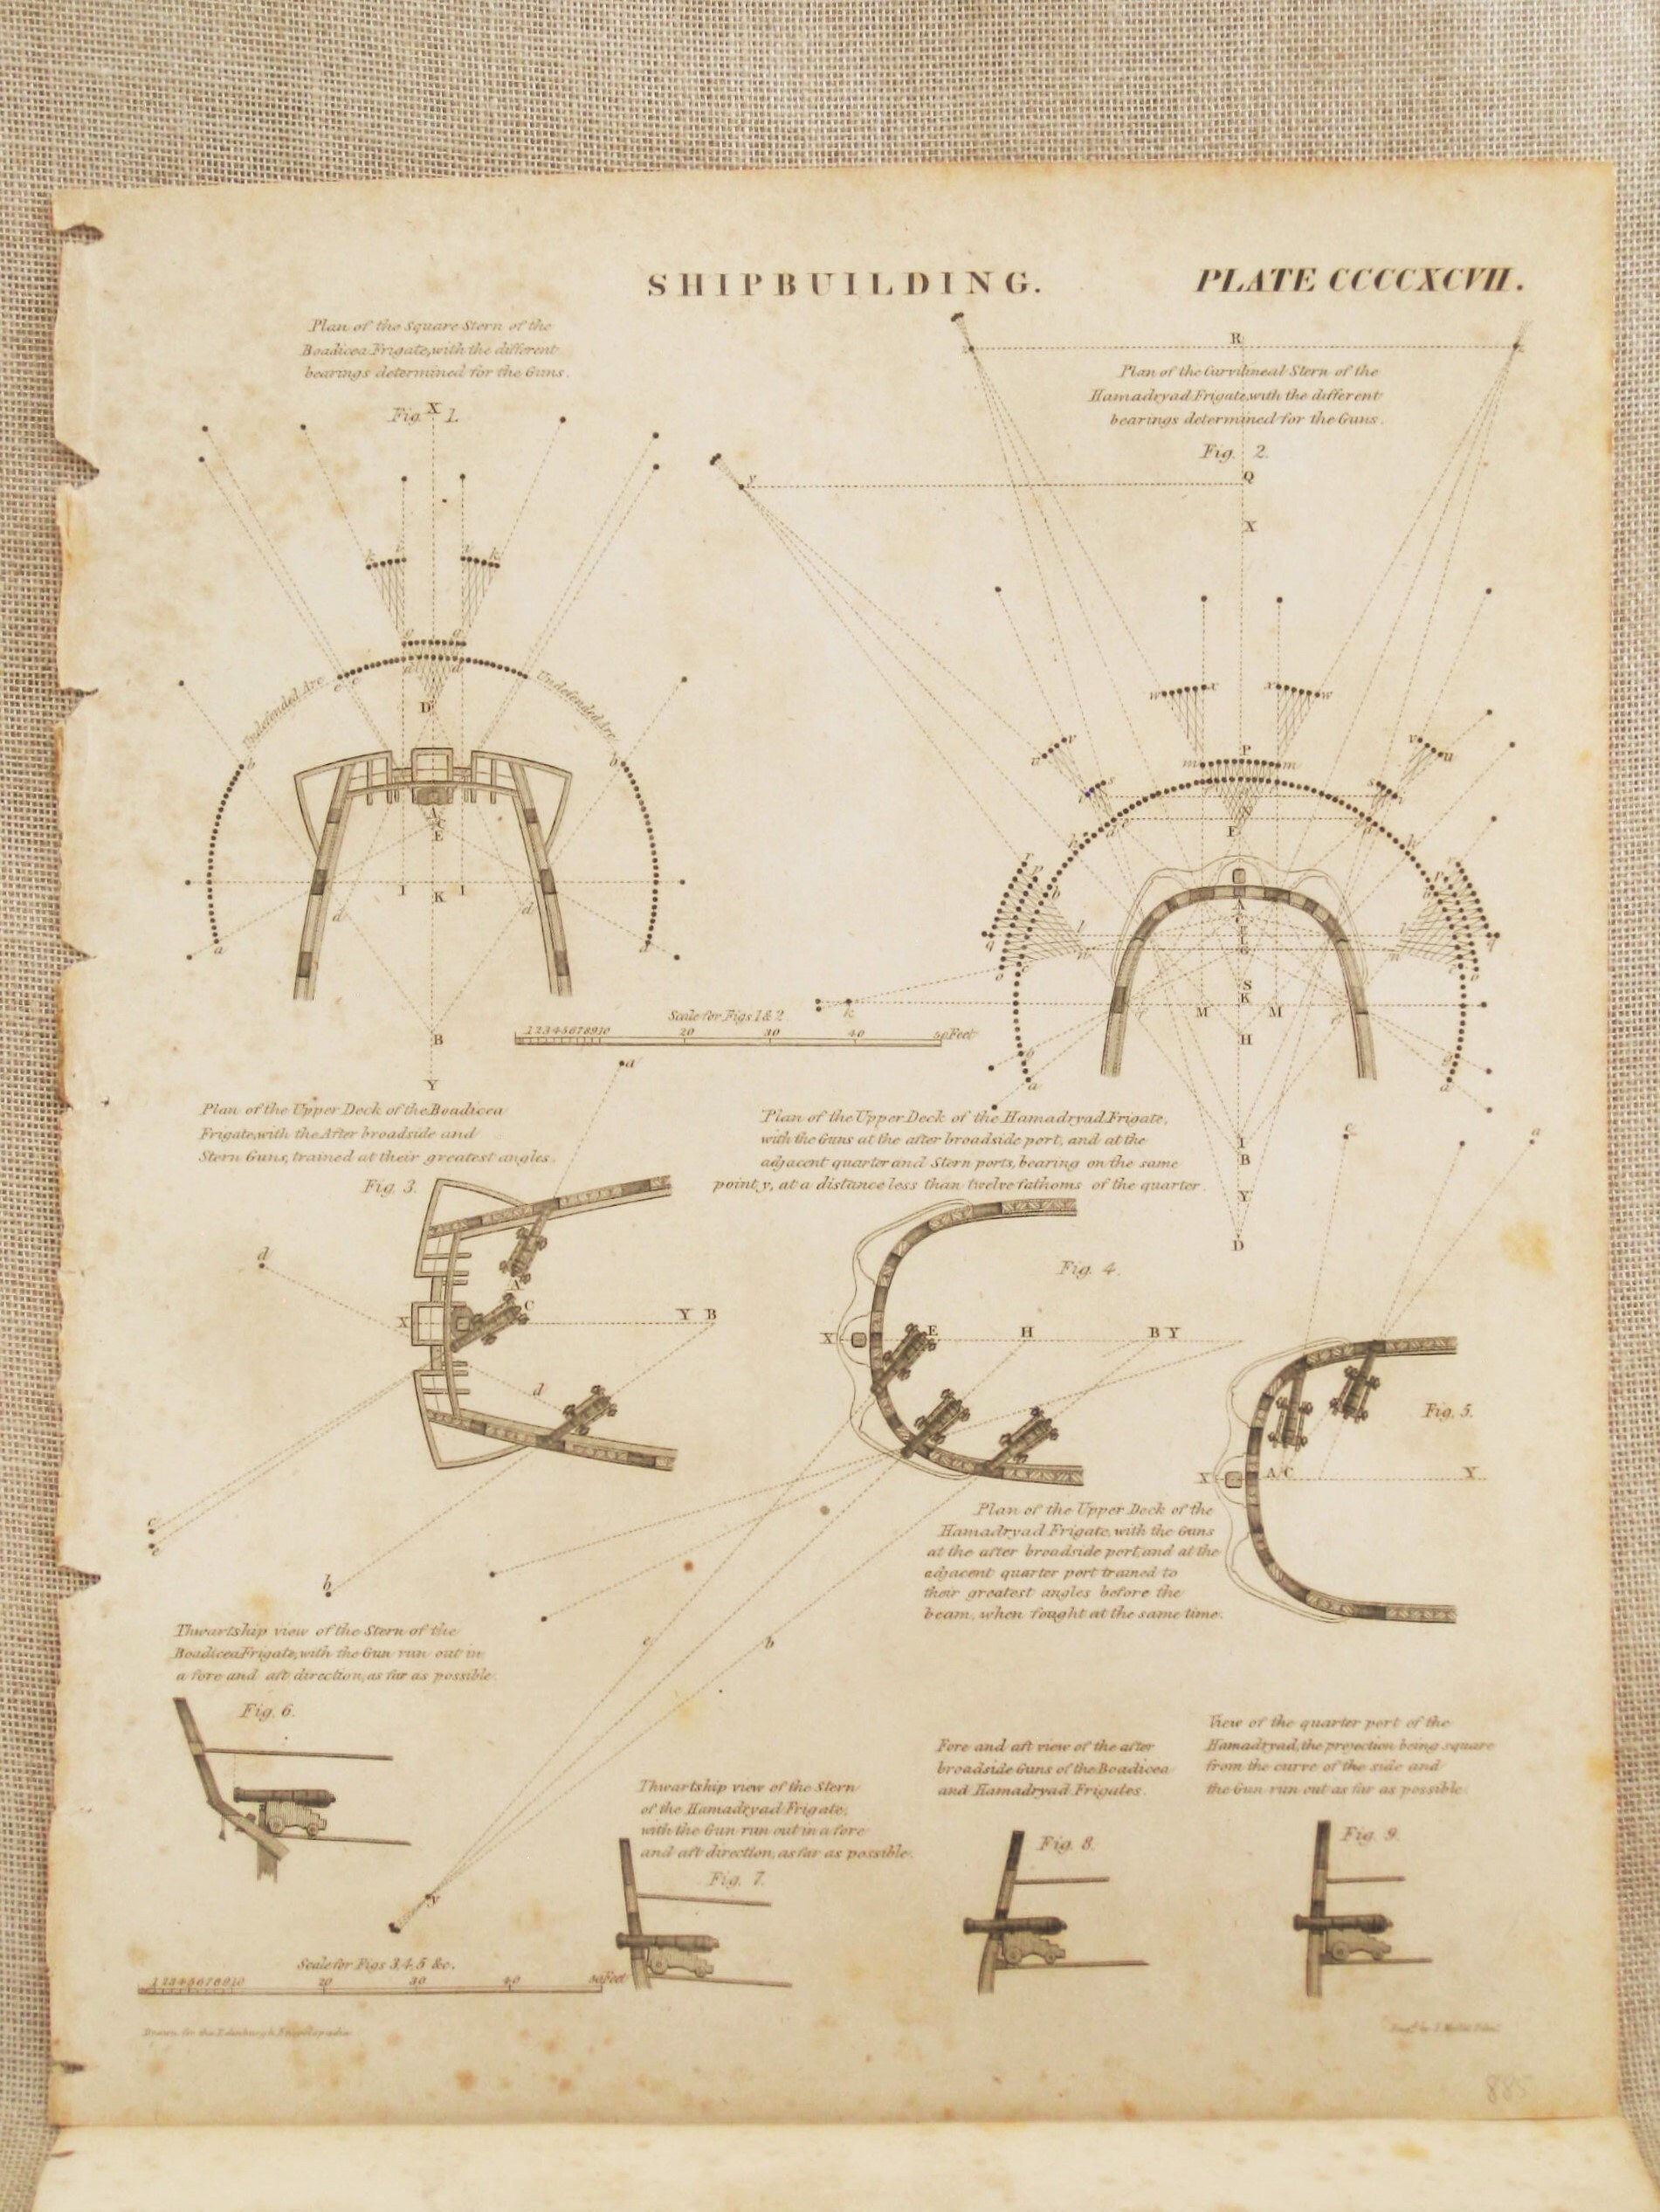 SHIPBUILDING.
PLATE CCCCXCVII.
Plan of the Square Stern of the
Boadicea Frigate, with the different
bearings determined for the Guns.
Fig. 1.
X
k i i k
g g
Undefended Arc
Undefended Arc
c c
d
D
b b
A
C
E
I K I
d d
a a
B
Y
R
Plan of the Curvilineal Stern of the
Hamadryad Frigate, with the different
bearings determined for the Guns.
Fig. 2.
y
Q
X
w x x w
u v v u
P
m m
s s
F
A
S
K
M M
k
H
a a
I
B
Y
D
Scale for Figs 1 & 2
1 2 3 4 5 6 7 8 9 10 20 30 40 50 Feet
Plan of the Upper Deck of the Boadicea
Frigate, with the After broadside and
Stern Guns, trained at their greatest angles.
Fig. 3.
a
d
A
C
X
Y B
d
c
e
b
Plan of the Upper Deck of the Hamadryad Frigate,
with the Guns at the after broadside port, and at the
adjacent quarter and Stern ports, bearing on the same
point, y, at a distance less than twelve fathoms of the quarter.
Fig. 4.
X E H B Y
c b
y
c a
Fig. 5.
X A C Y
Plan of the Upper Deck of the
Hamadryad Frigate, with the Guns
at the after broadside port, and at the
adjacent quarter port trained to
their greatest angles before the
beam, when fought at the same time.
Thwartship view of the Stern of the
Boadicea Frigate, with the Gun run out in
a fore and aft direction, as far as possible.
Fig. 6.
Thwartship view of the Stern
of the Hamadryad Frigate,
with the Gun run out in a fore
and aft direction, as far as possible.
Fig. 7.
Fore and aft view of the after
broadside Guns of the Boadicea
and Hamadryad Frigates.
Fig. 8.
View of the quarter port of the
Hamadryad, the projection being square
from the curve of the side and
the Gun run out as far as possible.
Fig. 9.
Scale for Figs 3, 4, 5 &c.
1 2 3 4 5 6 7 8 9 10 20 30 40 50 Feet
Drawn for the Edinburgh Encyclopædia
885